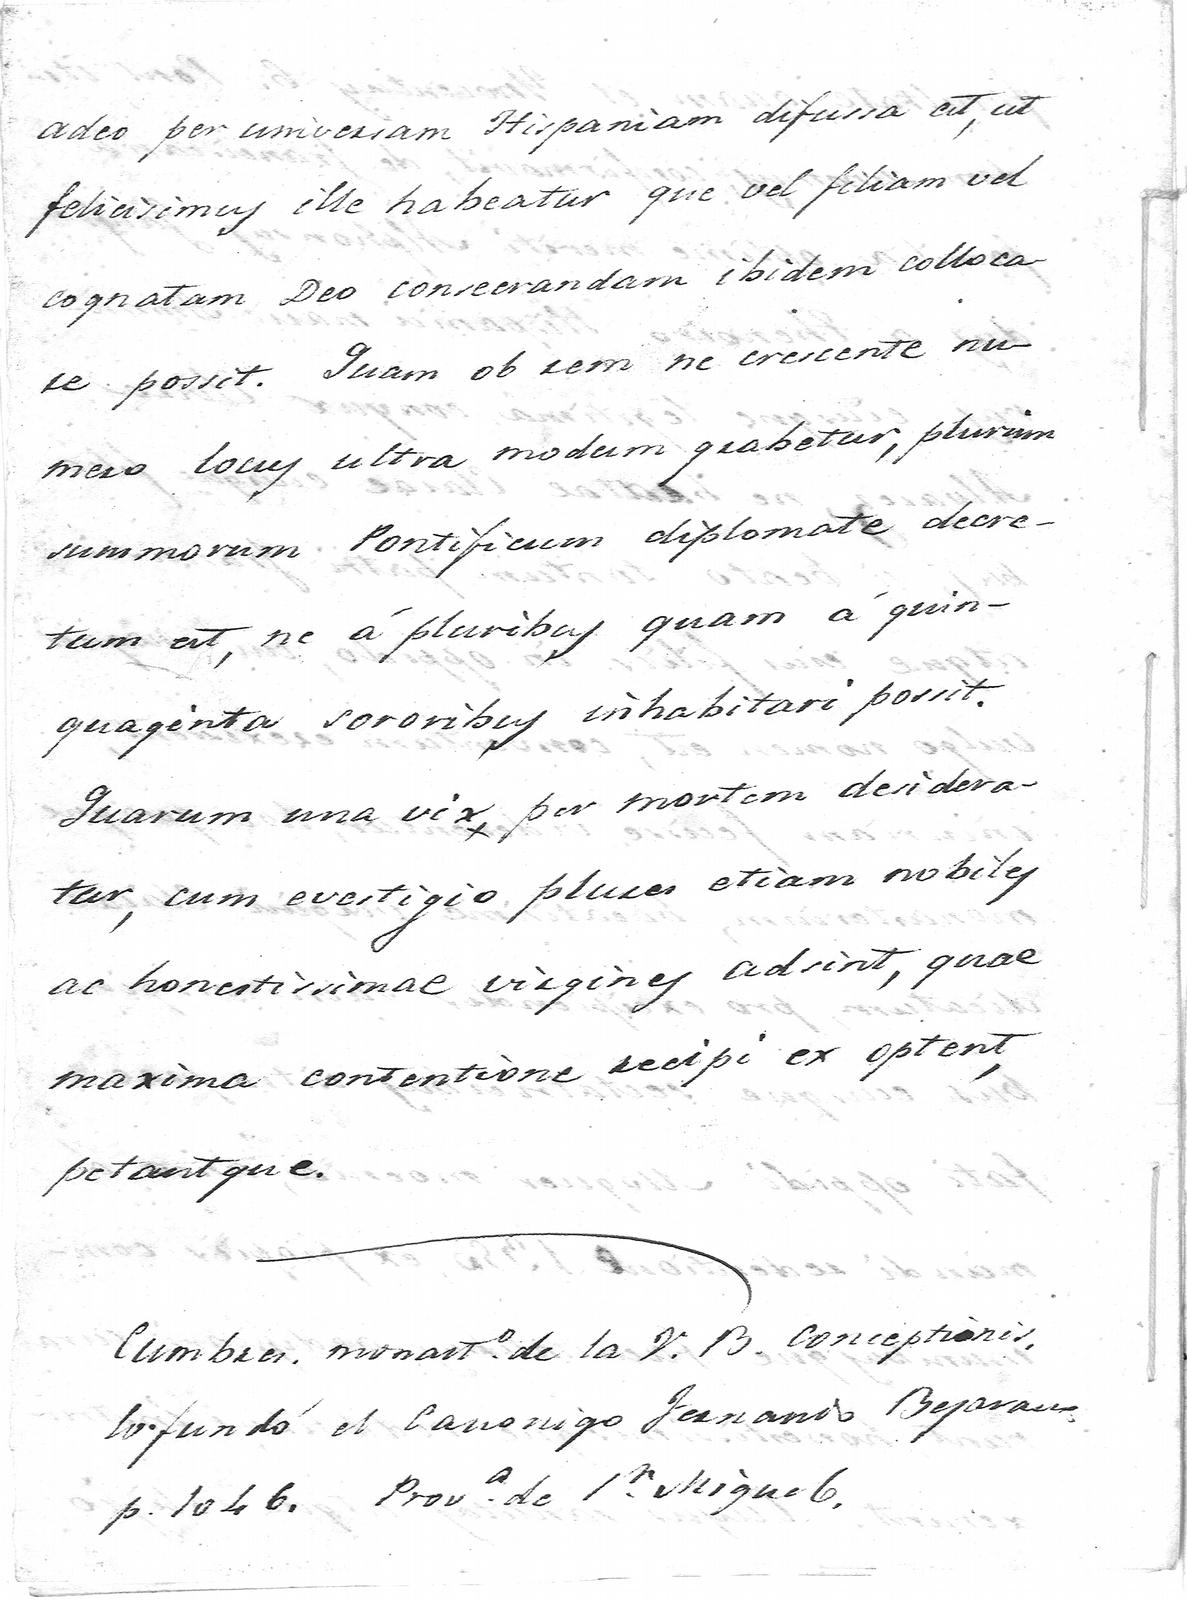 adeo per universam Hispaniam difussa est, ut
felicisimus ille habeatur que vel filiam vel
cognatam Deo consecrandam ibidem colloca-
re possit. Quam ob rem ne crescente nu-
mero locus ultra modum grabetur, plurium
summorum Pontificum diplomate decre-
tum est, ne á pluribus quam á quin-
quaginta sororibus inhabitari possit.
Quarum una vix per mortem desidera-
tur, cum evestigio plures etiam nobiles
ac honestissimae virgines adsint, quae
maxima contentione recipi ex optent,
petantque.
Cumbres. monastº. de la V. B. Conceptionis.
lo fundó el Canonigo Fernando Bejarano
p. 1046. Provª. de Sⁿ. Miguel.